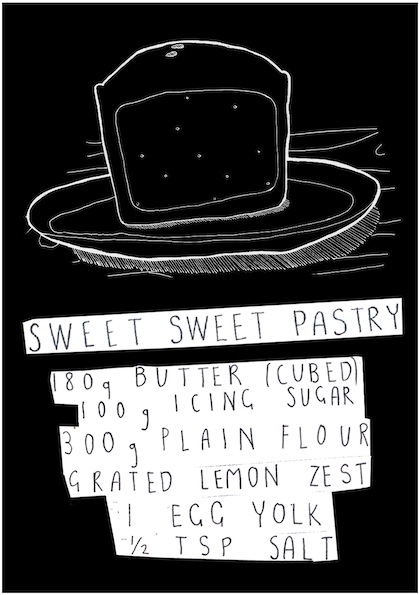 SWEET SWEET PASTRY
180g BUTTER (CUBED)
100g ICING SUGAR
300g PLAIN FLOUR
GRATED LEMON ZEST
1 EGG YOLK
1/2 TSP SALT